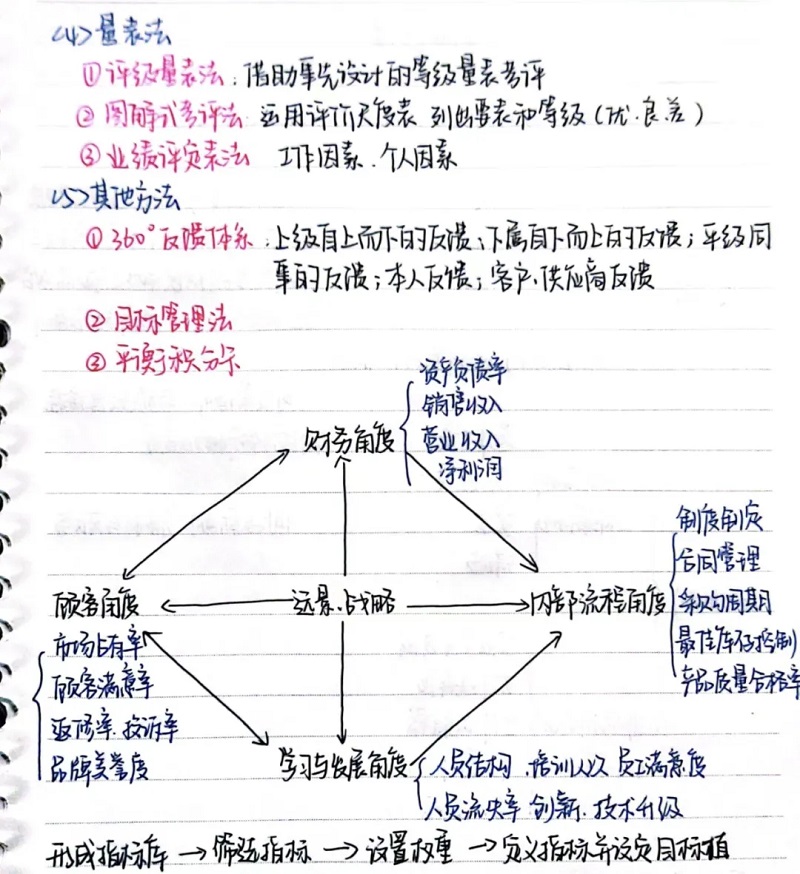 <4>量表法
①评级量表法：借助事先设计的等级量表考评
②图解式考评法 运用评价尺度表 列出要素和等级（优.良.差）
③业绩评定表法 工作因素.个人因素
<5>其他方法
①360°反馈体系：上级自上而下的反馈、下属自下而上的反馈；平级同
事的反馈；本人反馈；客户、供应商反馈
②目标管理法
③平衡积分卡
资产负债率
销售收入
财务角度
营业收入
净利润
制度制定
合同管理
顾客角度 远景.战略 内部流程角度
采购周期
市场占有率
最佳库存控制
顾客满意率
产品质量合格率
返修率.投诉率
品牌美誉度
学习与发展角度 人员结构.培训人次 员工满意度
人员流失率 创新.技术升级
形成指标库→筛选指标→设置权重→定义指标并设定目标值